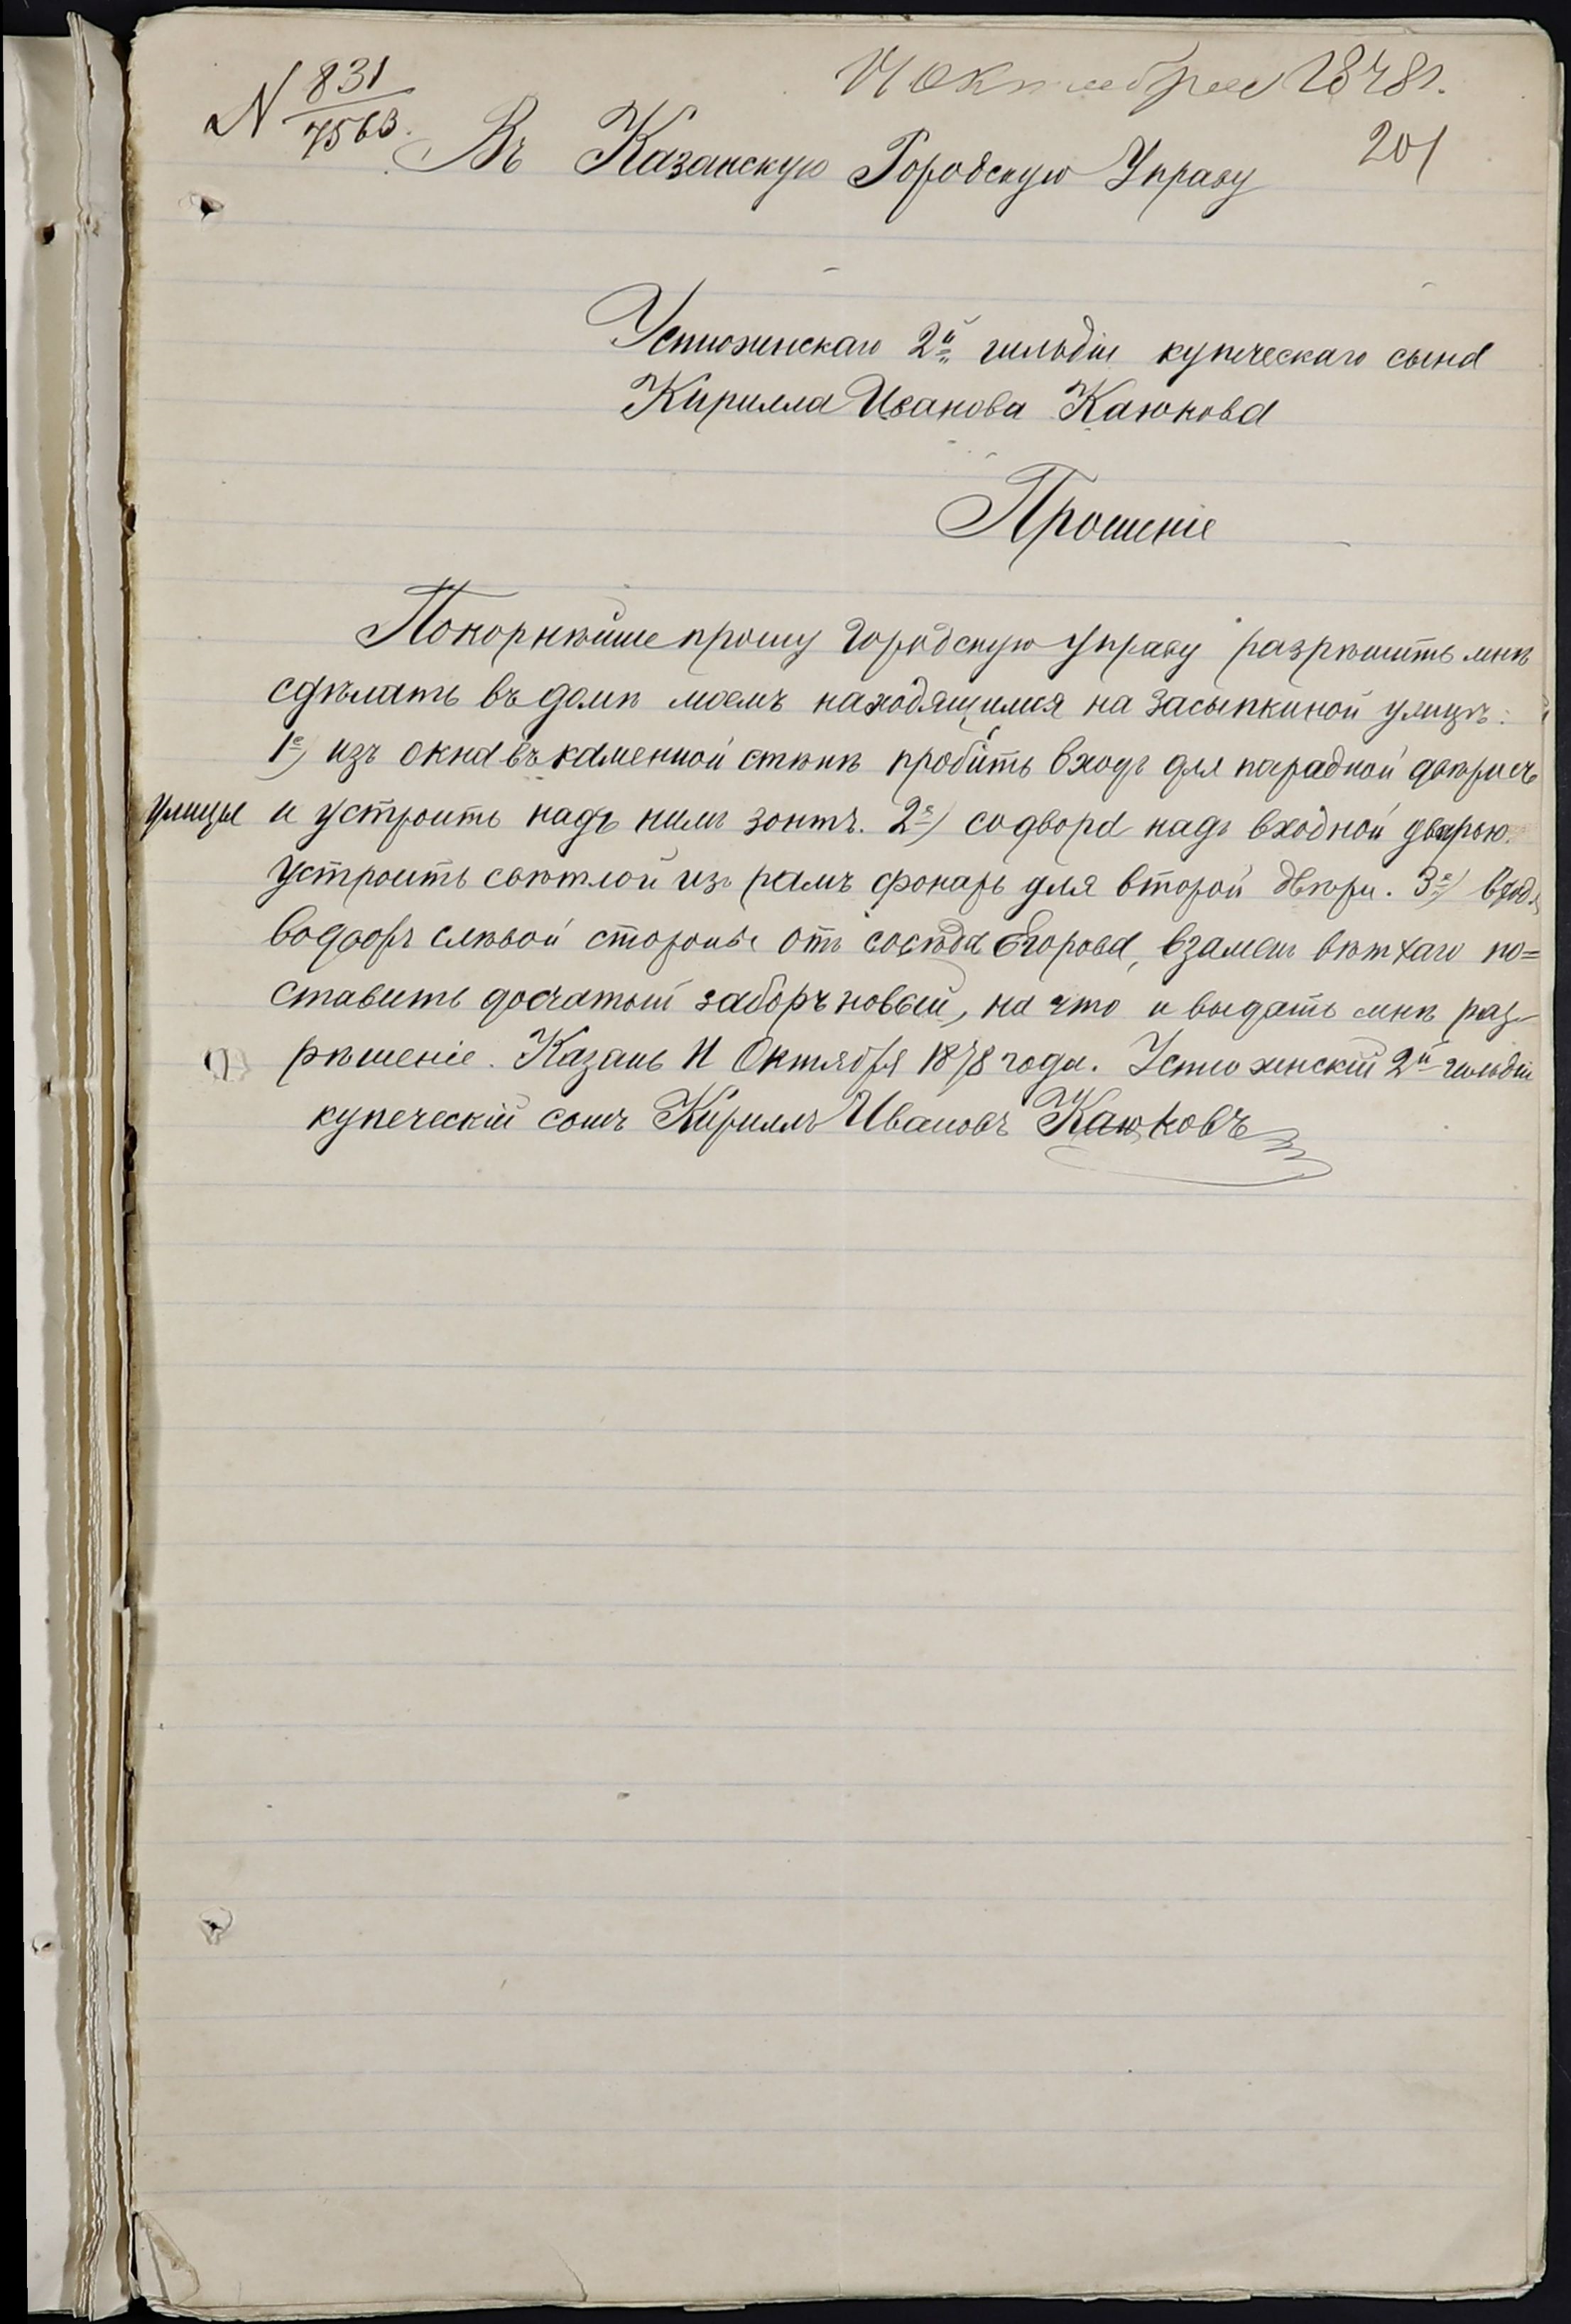 N 831/7563.
11 октября 1878 г.
201
Въ Казанскую Городскую Управу
Устюженскаго 2й гильдіи купеческаго сына
Кирилла Иванова Каюкова
Прошеніе
Покорнѣйше прошу Городскую Управу разрѣшить мнѣ
сдѣлать въ домѣ моемъ находящимся на Засыпкиной улицѣ:
1е) изъ окна въ каменной стѣнѣ пробить входъ для парадной двѣри съ
улицы и устроить надъ нимъ зонтъ. 2е) со двора надъ входной дверью
устроить свѣтлой изъ рамъ фонарь для второй двѣри. 3е) входя
во дворъ с лѣвой стороны отъ сосѣда Егорова, взамѣнъ вѣтхаго по=
ставить досчатый заборъ новый, на что и выдать мнѣ раз-
рѣшеніе. Казань 11 Октября 1878 года. Устюженскій 2й гильдіи
купеческій сынъ Кириллъ Ивановъ Каюковъ